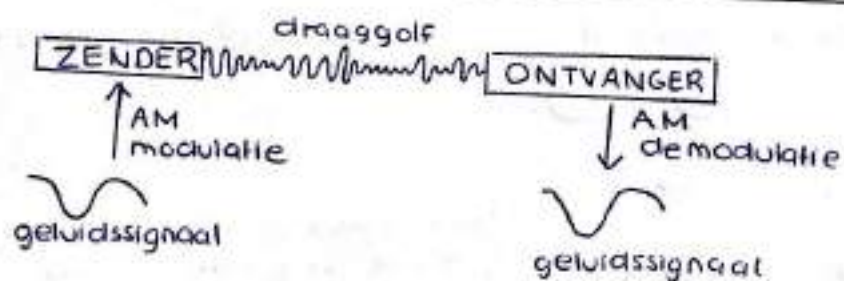 draaggolf
ZENDER
ONTVANGER
AM
modulatie
AM
demodulatie
geluidssignaal
geluidssignaal